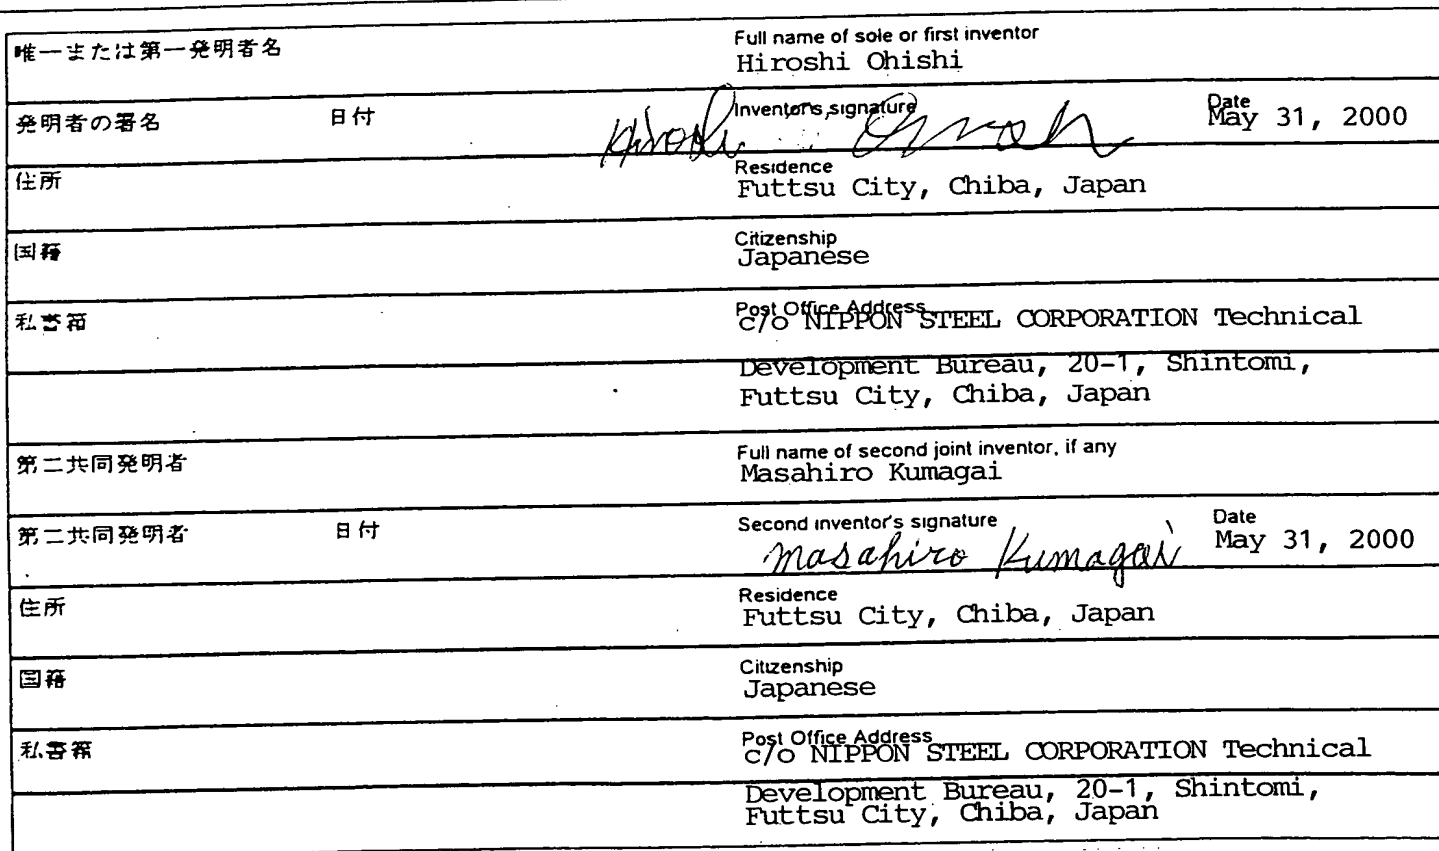 唯一または第一発明者名
Full name of sole or first inventor
Hiroshi Ohishi
発明者の署名 日付
Inventor's signature
Date
Hiroshi Ohishi
May 31, 2000
住所
Residence
Futtsu City, Chiba, Japan
国籍
Citizenship
Japanese
私書箱
Post Office Address
c/o NIPPON STEEL CORPORATION Technical
Development Bureau, 20-1, Shintomi,
Futtsu City, Chiba, Japan
第二共同発明者
Full name of second joint inventor, if any
Masahiro Kumagai
第二共同発明者 日付
Second inventor's signature
Date
Masahiro Kumagai
May 31, 2000
住所
Residence
Futtsu City, Chiba, Japan
国籍
Citizenship
Japanese
私書箱
Post Office Address
c/o NIPPON STEEL CORPORATION Technical
Development Bureau, 20-1, Shintomi,
Futtsu City, Chiba, Japan